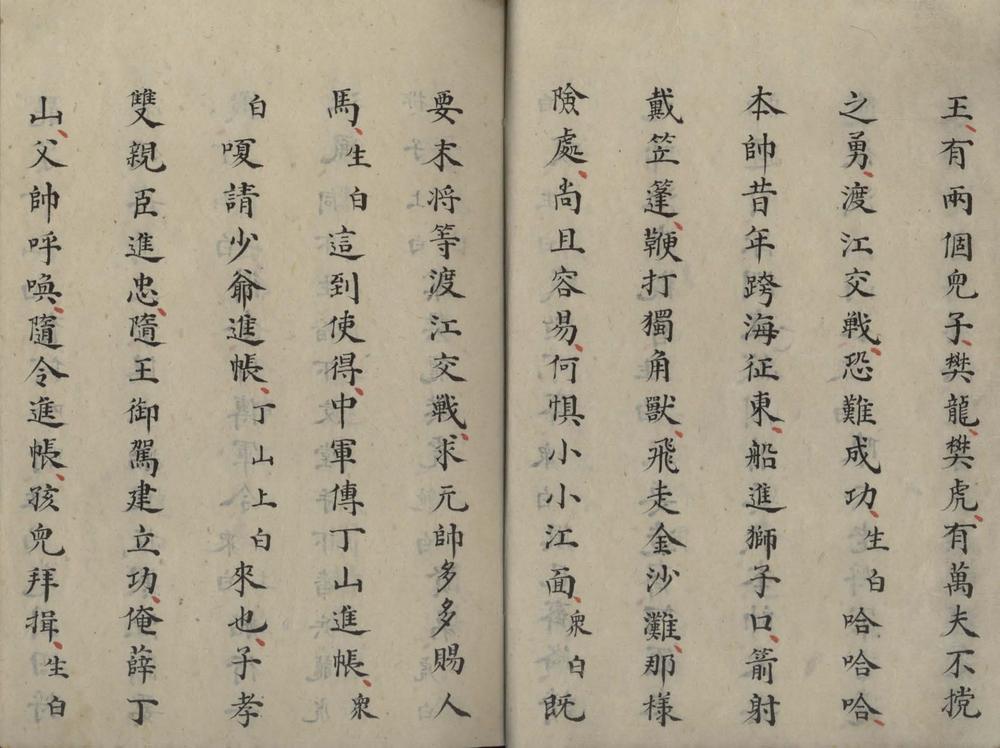 王、有兩個兒子、樊龍、樊虎、有萬夫不擋
之勇、渡江交戰、恐難成功、生白哈哈哈、
本帥昔年跨海征東、船進獅子口、箭射
戴笠篷、鞭打獨角獸、飛走金沙灘、那樣
險處、尚且容易、何惧小小江面、衆白既
要末将等渡江交戰、求元帥多多賜人
馬、生白這到使得、中軍傳丁山進帳、衆
白嗄請少爺進帳、丁山上白來也、子孝
雙親臣進忠、隨王御駕建立功、俺薛丁
山、父帥呼喚、隨令進帳、孩兒拜揖、生白